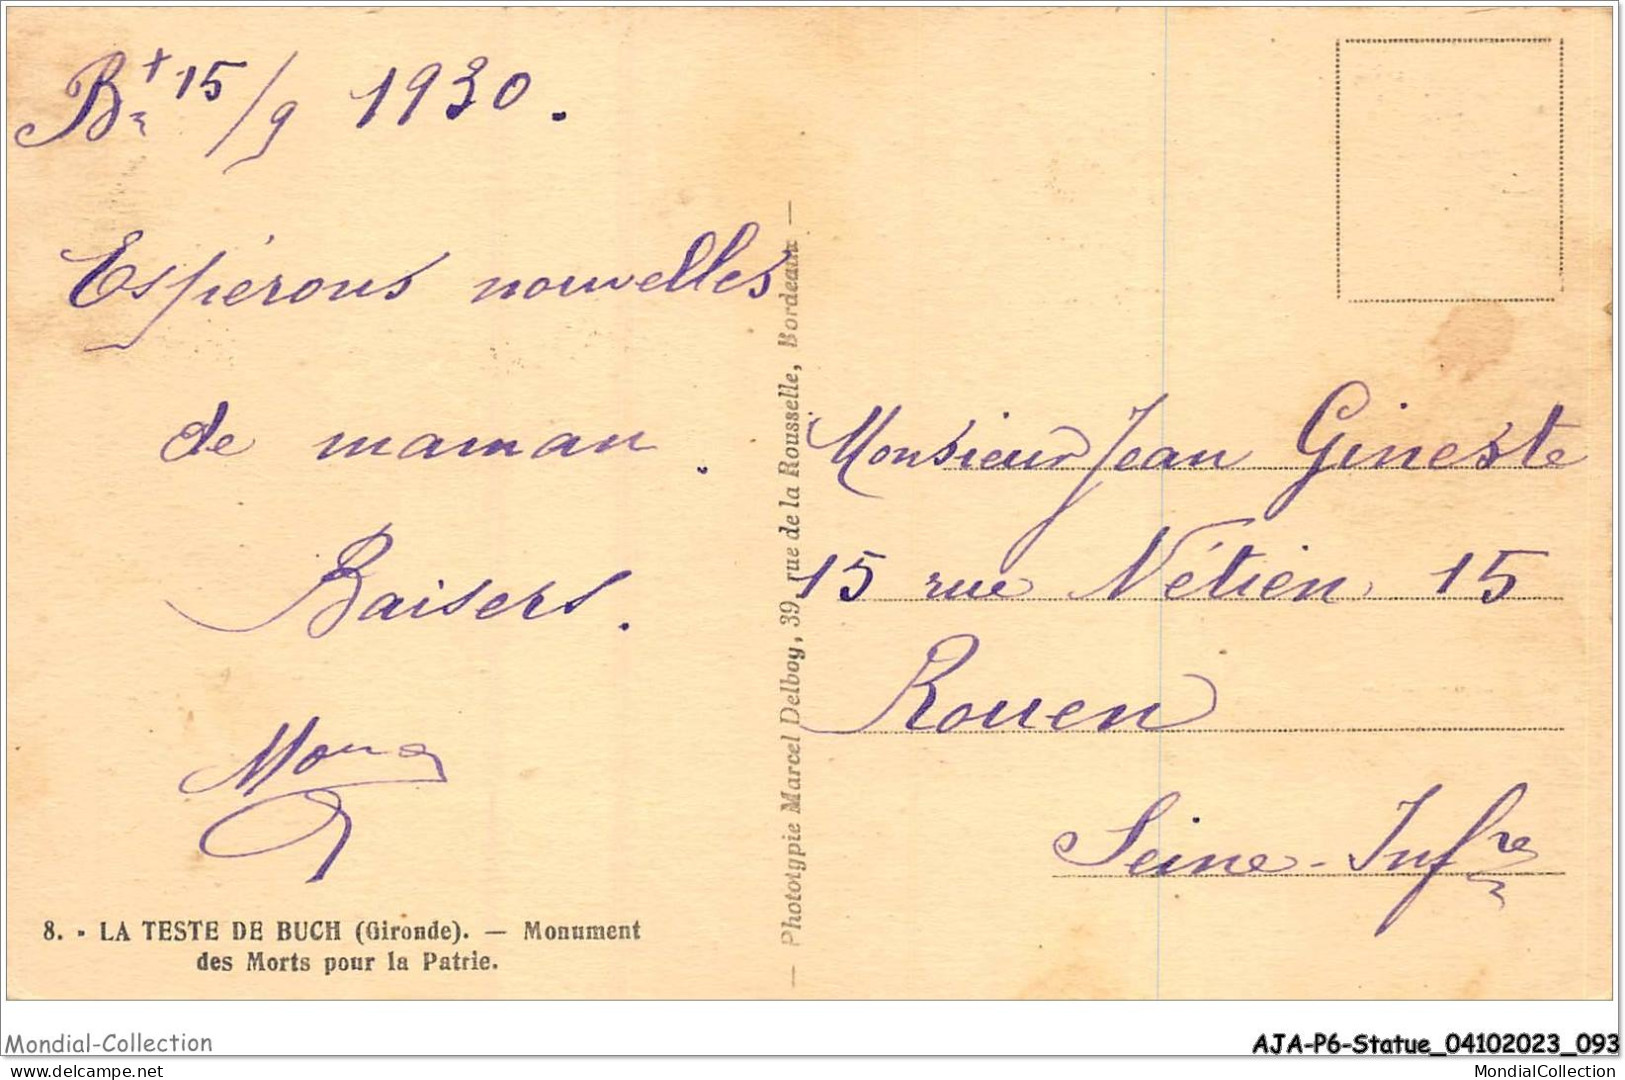 Bx 15/9 1930.
Espérons nouvelles
de maman.
Baisers.
8. - LA TESTE DE BUCH (Gironde). — Monument
des Morts pour la Patrie.
— Phototypie Marcel Delboy, 39, rue de la Rousselle, Bordeaux —
Monsieur Jean Gineste
15 rue Nétien 15
Rouen
Seine-Infre
Mondial-Collection
AJA-P6-Statue_04102023_093
delcampe.net
MondialCollection